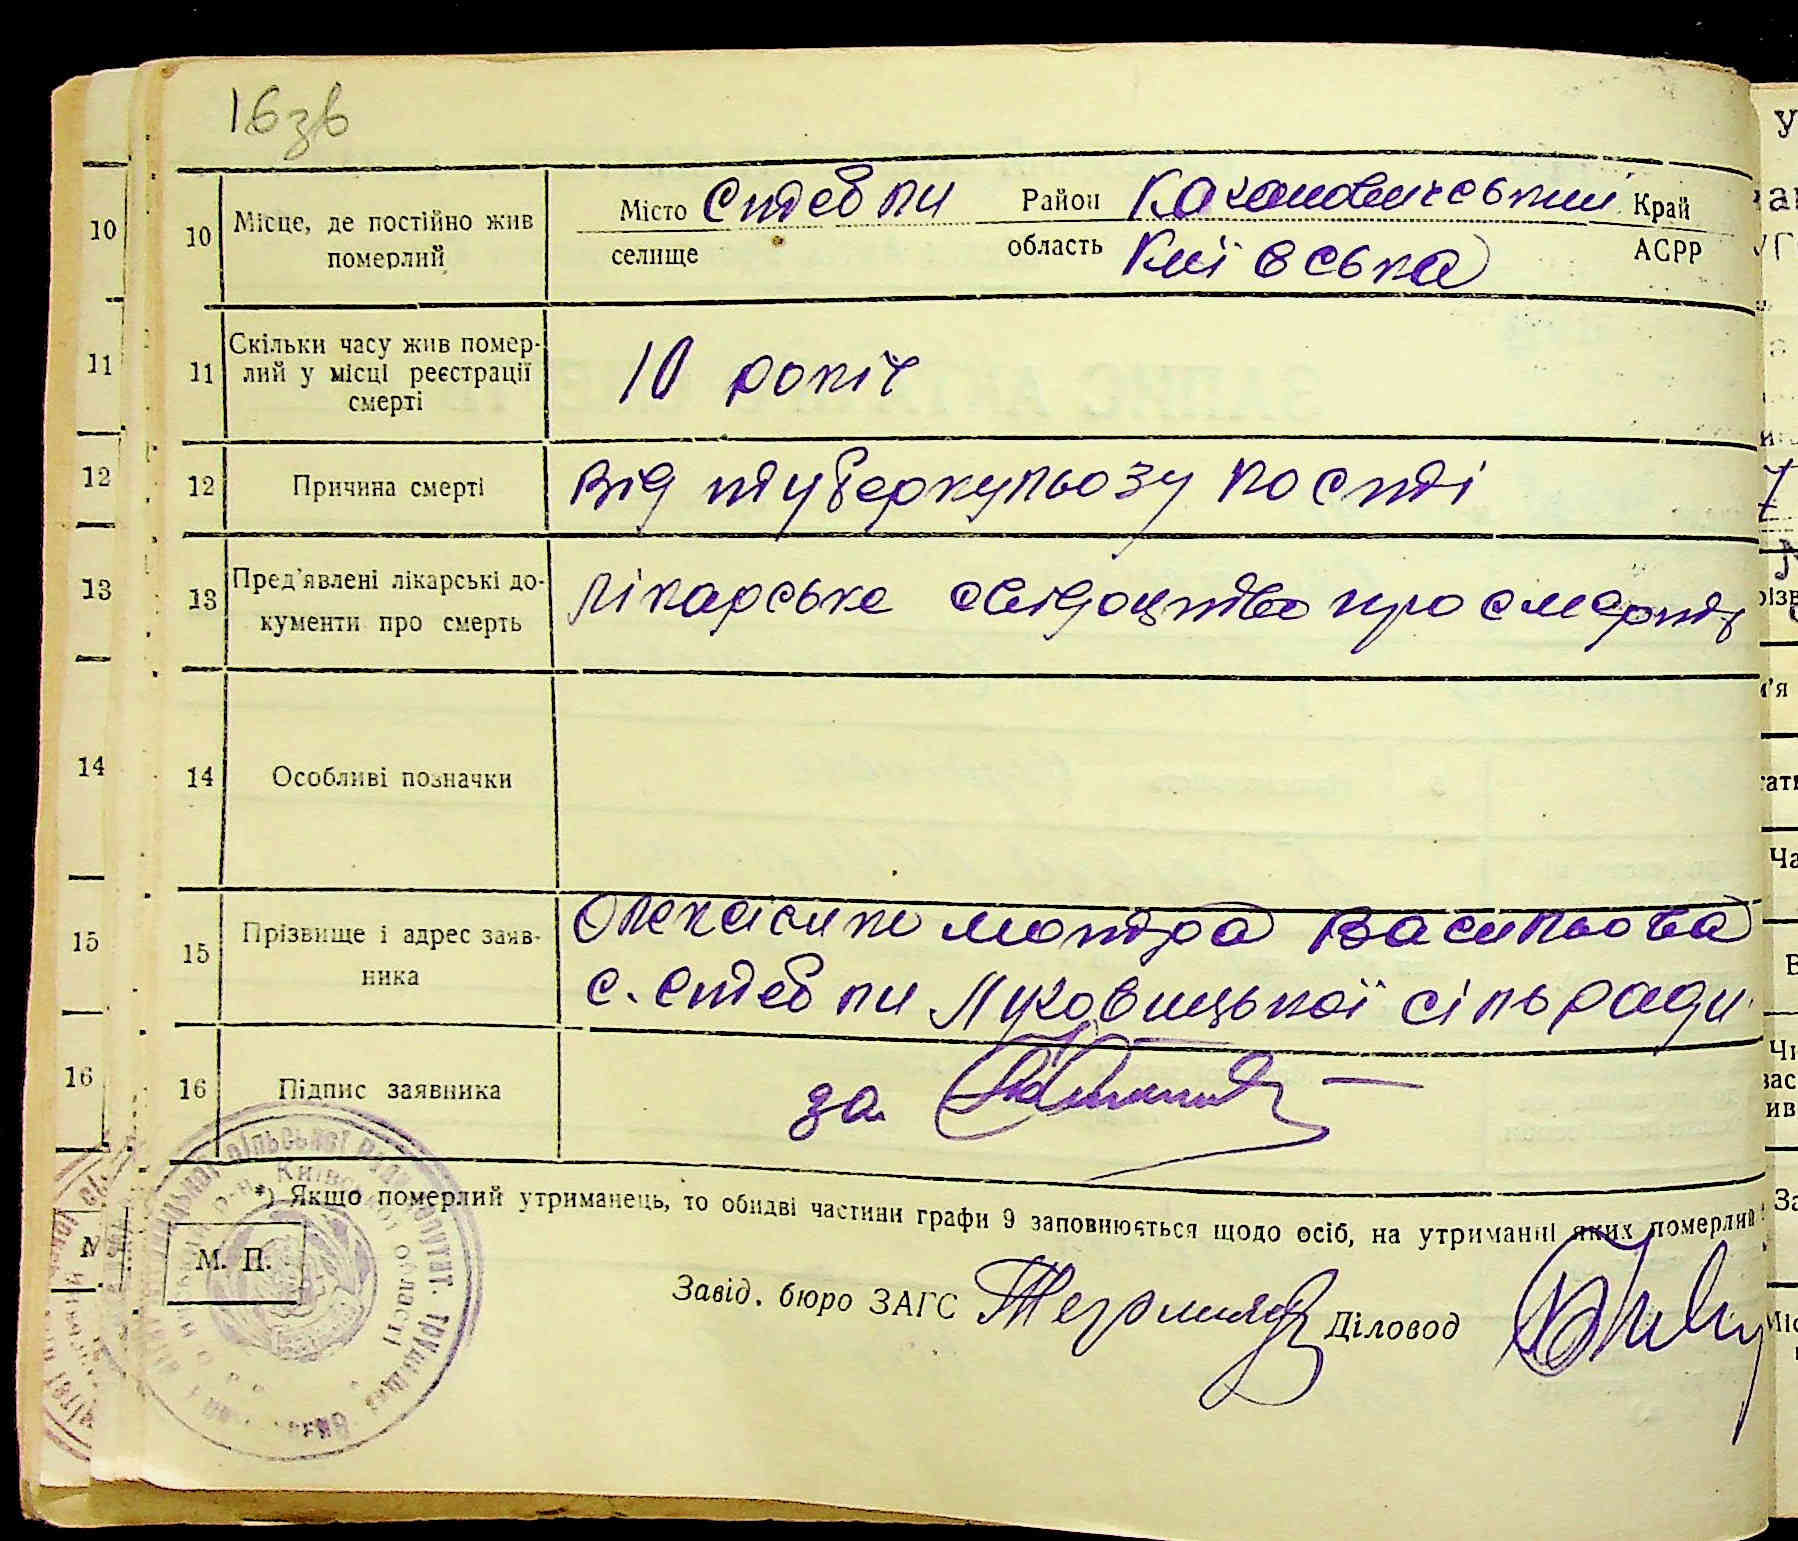 16зв
10 Місце, де постійно жив померлий Місто селище Стебли Район Кагановичський область Київська Край АСРР
11 Скільки часу жив помер-
лий у місці реєстрації
смерті
10 років
12 Причина смерті Від туберкульозу кості
13 Пред'явлені лікарські до-
кументи про смерть
Лікарське свідоцтво про смерть
14 Особливі позначки
15 Прізвище і адрес заяв-
ника
Мотря Василівна
с. Стебли Луковицької сільради
16 Підпис заявника за
*) Якщо померлий утриманець, то обидві частини графи 9 заповнюється щодо осіб, на утриманні яких померлий
М. П.
Завід. бюро ЗАГС Діловод
сільської області
10
11
12
13
14
15
16